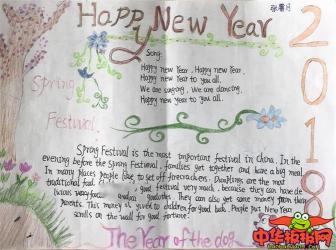 Happy New Year
张馨月
Song:
Happy new Year, Happy new Year,
Happy new Year to you all.
We are singing, We are dancing,
Happy new Year to you all.
Spring
Festival
2018
Spring Festival is the most important festival in China. In the
evening before the Spring Festival, families get together and have a big meal.
In many places people like to set off firecrackers. Dumplings are the most
traditional food. good festival very much, because they can have
and clothes. They can also get some money from their
parents. This money is given to children for good luck. People put New Year
scrolls on the wall for good fortune.
The Year of the dog
中华招招网